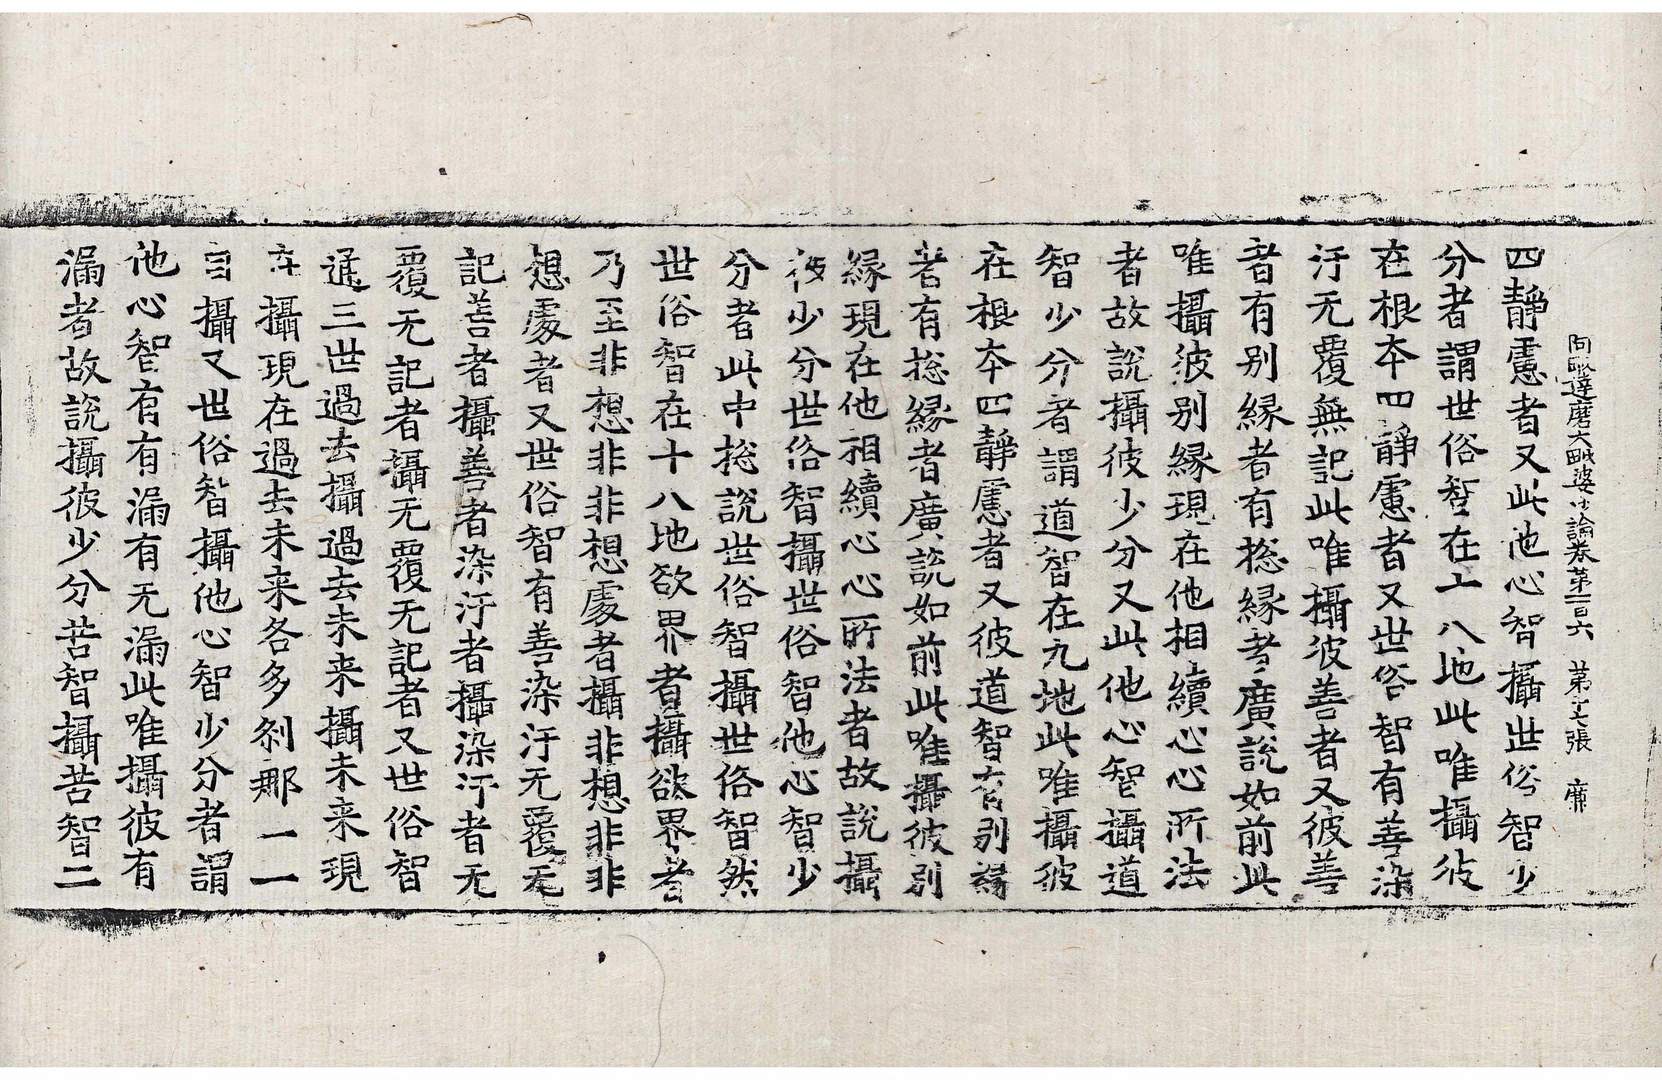 阿毗達磨大毗婆沙論卷第一百六　第十七張　廉
四靜慮者又此他心智攝世俗智少
分者謂世俗智在十八地此唯攝彼
在根本四靜慮者又世俗智有善染
汙无覆無記此唯攝彼善者又彼善
者有别緣者有揔緣者廣說如前此
唯攝彼别緣現在他相續心心所法
者故說攝彼少分又此他心智攝道
智少分者謂道智在九地此唯攝彼
在根本四靜慮者又彼道智有别緣
者有揔緣者廣說如前此唯攝彼别
緣現在他相續心心所法者故說攝
彼少分世俗智攝世俗智他心智少
分者此中揔說世俗智攝世俗智然
世俗智在十八地欲界者攝欲界者
乃至非想非非想處者攝非想非非
想處者又世俗智有善染汙无覆无
記善者攝善者染汙者攝染汙者无
覆无記者攝无覆无記者又世俗智
通三世過去攝過去未来攝未来現
在攝現在過去未来各多刹那一一
自攝又世俗智攝他心智少分者謂
他心智有有漏有无漏此唯攝彼有
漏者故說攝彼少分苦智攝苦智二